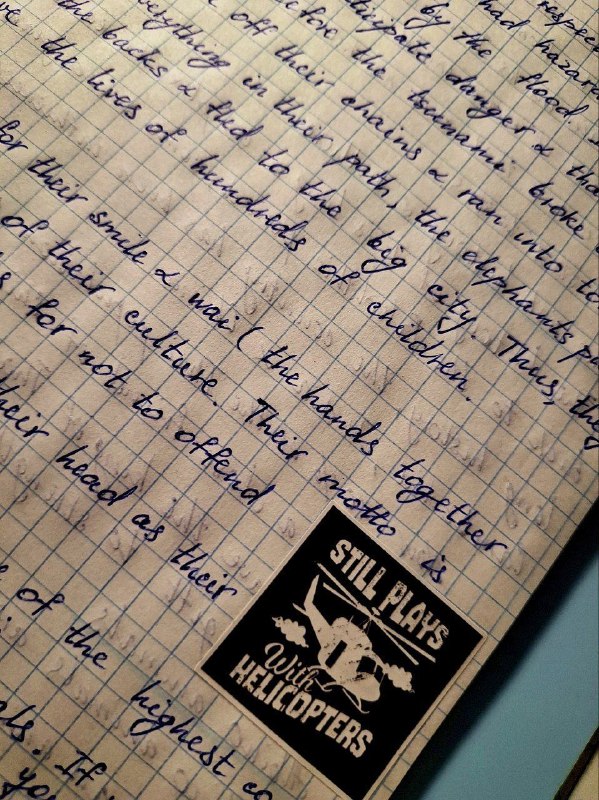 had
by the flood
danger &
the tsunami broke
off their chains & ran into
in their path, the elephants
the backs & fled to the big city. Thus, they
the lives of hundreds of children.
for their smile & wai (the hands together
of their culture. Their motto is
for not to offend
their head as their
of the highest
If
you
STILL PLAYS
With
HELICOPTERS